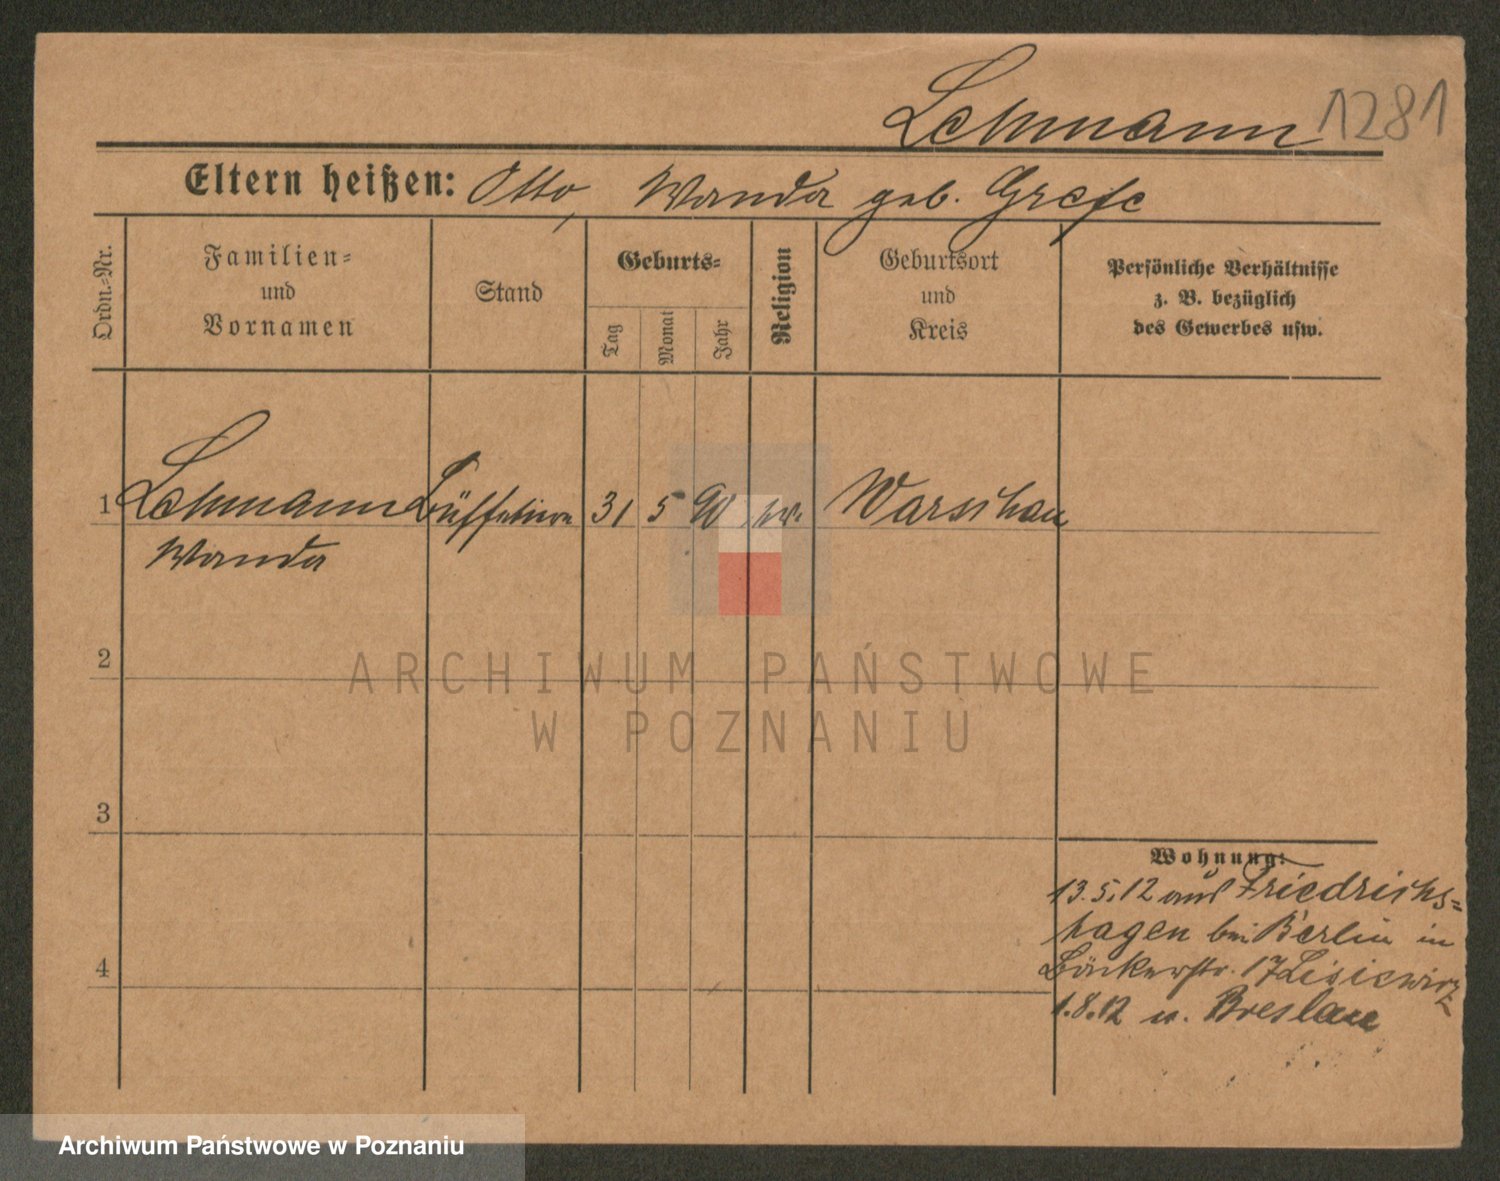 Lehmann 1281
Eltern heißen: Otto, Wanda geb. Grefe
Ordn.-Nr.
Familien-
und
Vornamen
Stand
Geburts-
Tag
Monat
Jahr
Religion
Geburtsort
und
Kreis
Persönliche Verhältnisse
z. B. bezüglich
des Gewerbes usw.
1 Lehmann 31 5 90 Warschau
Wanda
2
ARCHIWUM PAŃSTWOWE
W POZNANIU
3
Wohnung:
13.5.12 aus Friedrichs-
hagen bei Berlin in
Bäckerstr. 17 Lisiewicz
4
1.8.12 n. Breslau
Archiwum Państwowe w Poznaniu